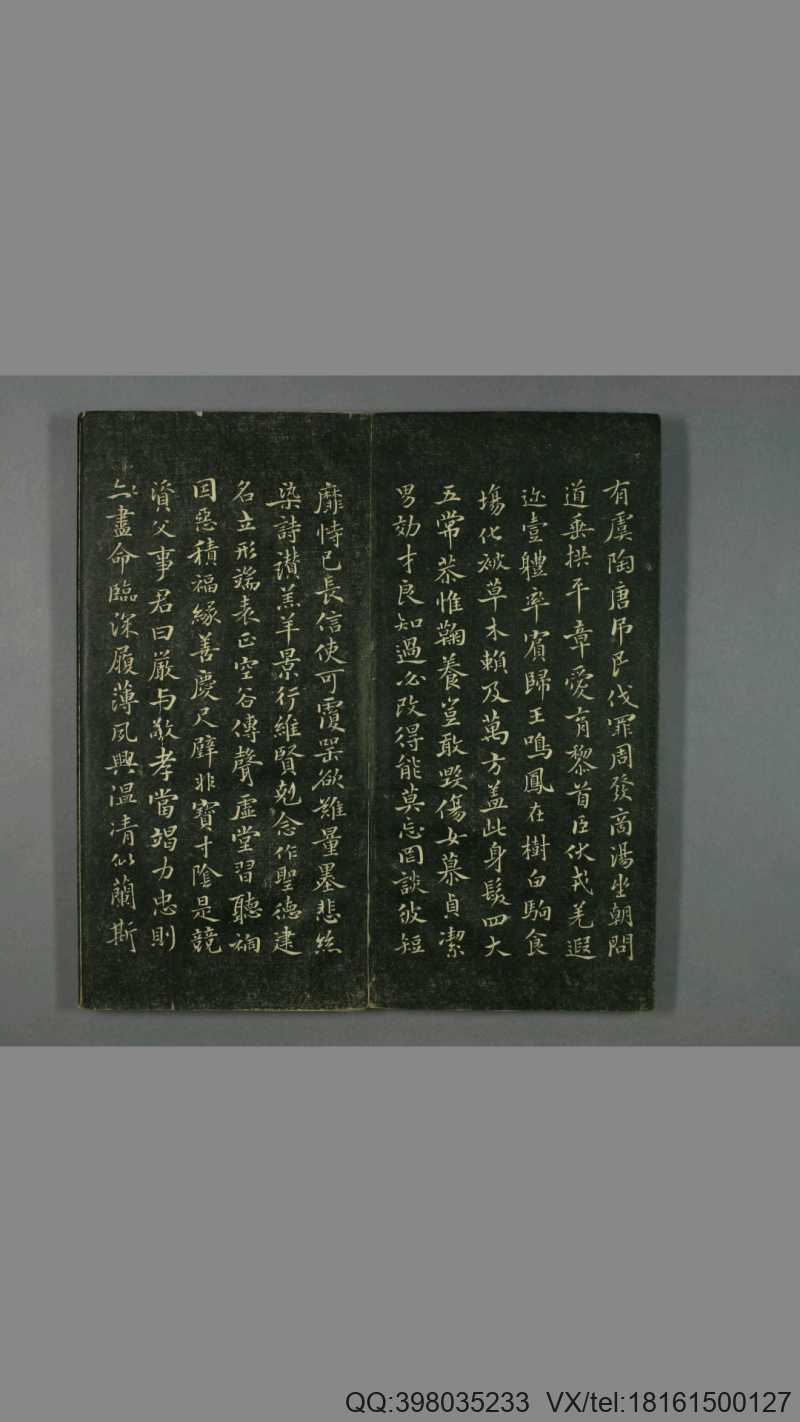 有虞陶唐吊民伐罪周發商湯坐朝問
道垂拱平章愛育黎首臣伏戎羌遐
迩壹體率賓歸王鳴鳳在樹白駒食
場化被草木賴及萬方盖此身髮四大
五常恭惟鞠養豈敢毀傷女慕貞潔
男効才良知過必改得能莫忘罔談彼短
靡恃己長信使可覆器欲難量墨悲絲
染詩讃羔羊景行維賢剋念作聖德建
名立形端表正空谷傳聲虛堂習聽禍
因惡積福緣善慶尺璧非寶寸陰是競
資父事君曰嚴与敬孝當竭力忠則
盡命臨深履薄夙興温凊似蘭斯
QQ:398035233 VX/tel:18161500127